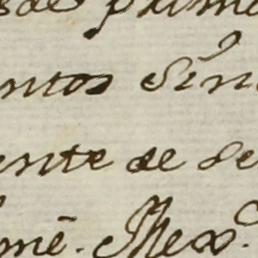 de prime
ntos Sin
ente de se
me. Mexo.